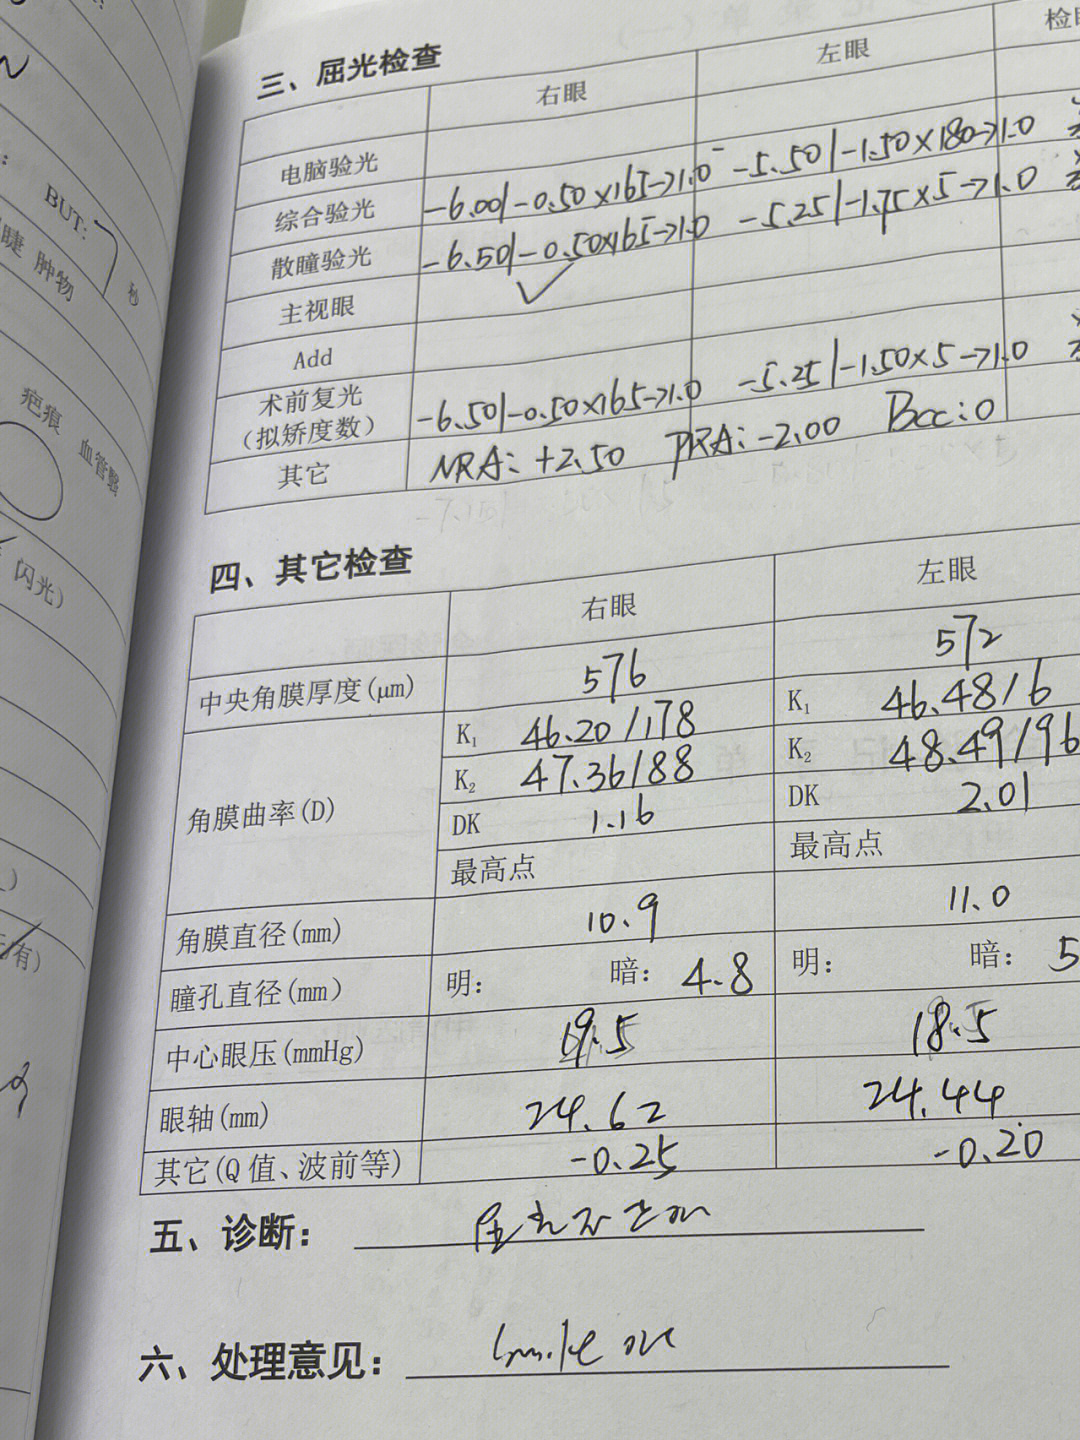 BUT:
秒
睫 肿物
疤痕 血管翳
闪光）
有）
三、屈光检查
右眼 左眼
电脑验光
综合验光 -6.00/-0.50×165→1.0⁻ -5.50/-1.50×180→1.0
散瞳验光 -6.50/-0.50×165→1.0 -5.25/-1.75×5→1.0
主视眼 ✓
Add
术前复光
（拟矫度数） -6.50/-0.50×165→1.0 -5.25/-1.50×5→1.0
其它 NRA: +2.50 PRA: -2.00 Bcc: 0
四、其它检查
右眼 左眼
中央角膜厚度(μm) 576 572
角膜曲率(D)
K₁ 46.20/178 K₁ 46.48/6
K₂ 47.36/88 K₂ 48.49/96
DK 1.16 DK 2.01
最高点 最高点
角膜直径(mm) 10.9 11.0
瞳孔直径(mm) 明: 暗: 4.8 明: 暗: 5
中心眼压(mmHg) 19.5 18.5
眼轴(mm) 24.62 24.44
其它(Q值、波前等) -0.25 -0.20
五、诊断: 屈光不正ou
六、处理意见: Smile ou